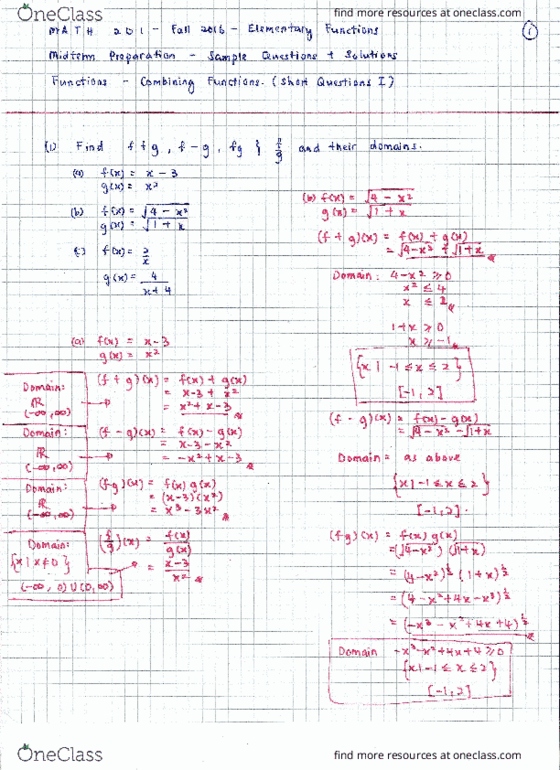 OneClass
find more resources at oneclass.com
MATH 201 - Fall 2016 - Elementary Functions
①
Midterm Preparation - Sample Questions + Solutions
Functions - Combining Functions. (Short Questions I)
(1) Find f+g, f-g, fg & f/g and their domains.
(a) f(x) = x - 3
g(x) = x²
(b) f(x) = √4 - x²
g(x) = √1 + x
(c) f(x) = 2/x
g(x) = 4/x+4
(a) f(x) = x-3
g(x) = x²
(f+g)(x) = f(x) + g(x)
= x-3 + x²
= x²+x-3
Domain:
ℝ
(-∞,∞)
(f-g)(x) = f(x) - g(x)
= x-3-x²
= -x²+x-3
Domain:
ℝ
(-∞,∞)
(fg)(x) = f(x) g(x)
= (x-3)(x²)
= x³-3x²
Domain:
ℝ
(-∞,∞)
(f/g)(x) = f(x)/g(x)
= x-3/x²
Domain:
{x | x≠0}
(-∞, 0) U (0, ∞)
(b) f(x) = √4 - x²
g(x) = √1 + x
(f+g)(x) = f(x) + g(x)
= √4-x² + √1+x
Domain: 4-x² ≥ 0
x² ≤ 4
x ≤ 2
1+x ≥ 0
x ≥ -1
{x | -1 ≤ x ≤ 2}
[-1, 2]
(f - g)(x) = f(x) - g(x)
= √4-x² - √1+x
Domain = as above
{x | -1 ≤ x ≤ 2}
[-1, 2].
(fg)(x) = f(x) g(x)
= (√4-x²) (√1+x)
= (4-x²)^½ (1+x)^½
= (4-x²+4x-x³)^½
= (-x³-x²+4x+4)^½
Domain -x³-x²+4x+4 ≥ 0
{x | -1 ≤ x ≤ 2}
[-1, 2]
OneClass
find more resources at oneclass.com